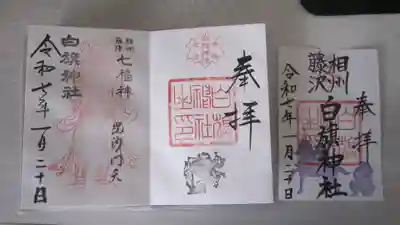 奉拝
白旗神社之印
相州藤沢
七福神
毘沙門天
白旗神社
令和七年一月二十日
奉拝
相州
藤沢
白旗神社
令和七年一月二十日